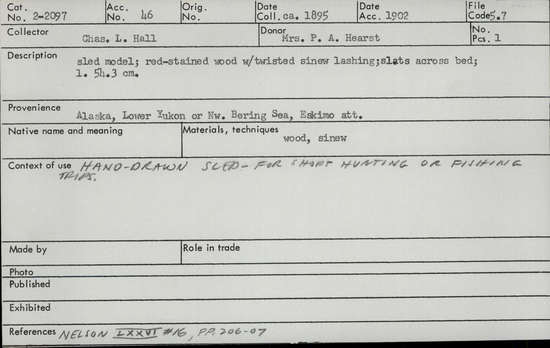 Cat. No. 2-2097 Acc. No. 46 Orig. No. Date Coll. ca. 1895 Date Acc. 1902 File Code 5.7
Collector Chas. L. Hall Donor Mrs. P. A. Hearst No. Pcs. 1
Description sled model; red-stained wood w/twisted sinew lashing;slats across bed;
l. 54.3 cm.
Provenience Alaska, Lower Yukon or Nw. Bering Sea, Eskimo att.
Native name and meaning Materials, techniques
wood, sinew
Context of use HAND-DRAWN SLED- FOR SHORT HUNTING OR FISHING
TRIPS.
Made by Role in trade
Photo
Published
Exhibited
References NELSON LXXVI #16, PP. 206-07